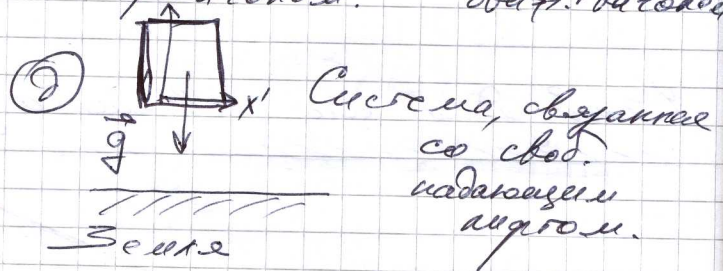 д
X'
g
Земля
Система, связанная
со своб.
падающим
лифтом.